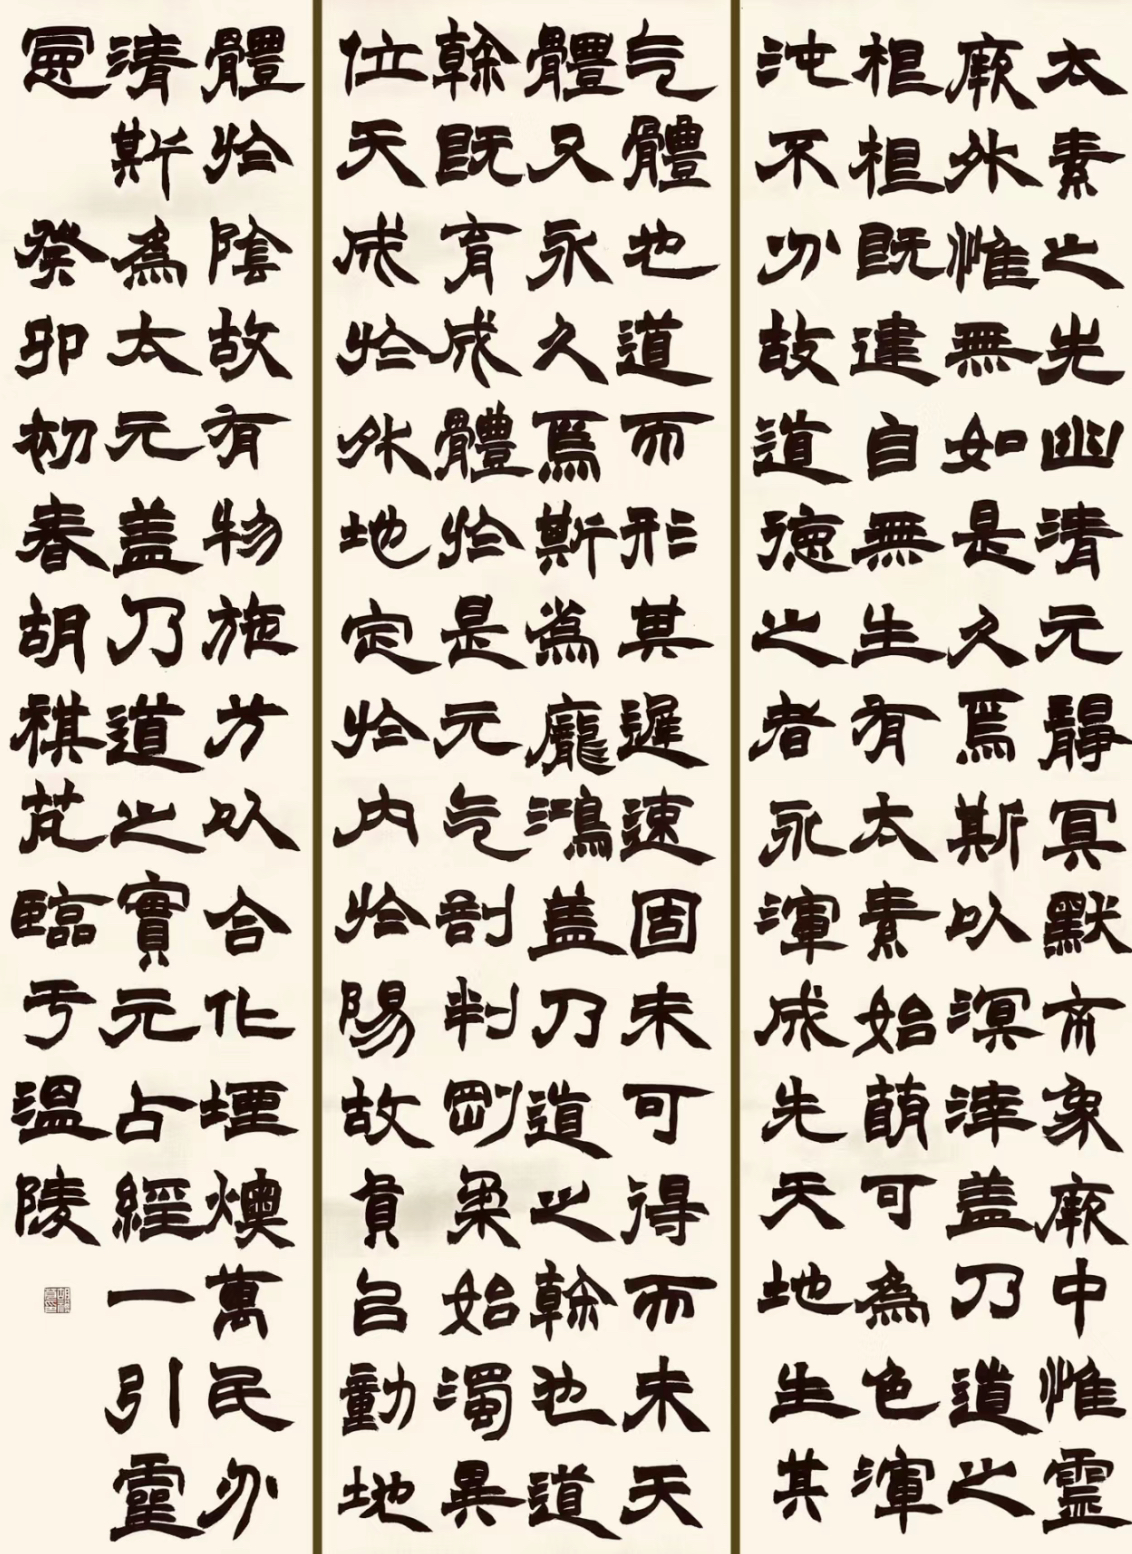 太素之先幽清元靜冥默象厥中惟靈
厥外惟無如是久焉斯以溟涬盖乃道之
根根既建自無生有太素始萌可為色渾
沌不分故道德之者永渾成先天地生其
气體也道而形其遲速固未可得而未天
體又永久焉斯爲龐鴻盖乃道之榦也道
榦既育成體於是元气剖判剛柔始濁異
位天成於外地定於內於陽故員㠯動地
體於陰故有物施方以合化堙燠萬民分
清斯為太元盖乃道之實元占經一引靈
憲 癸卯初春胡祺芃臨于溫陵